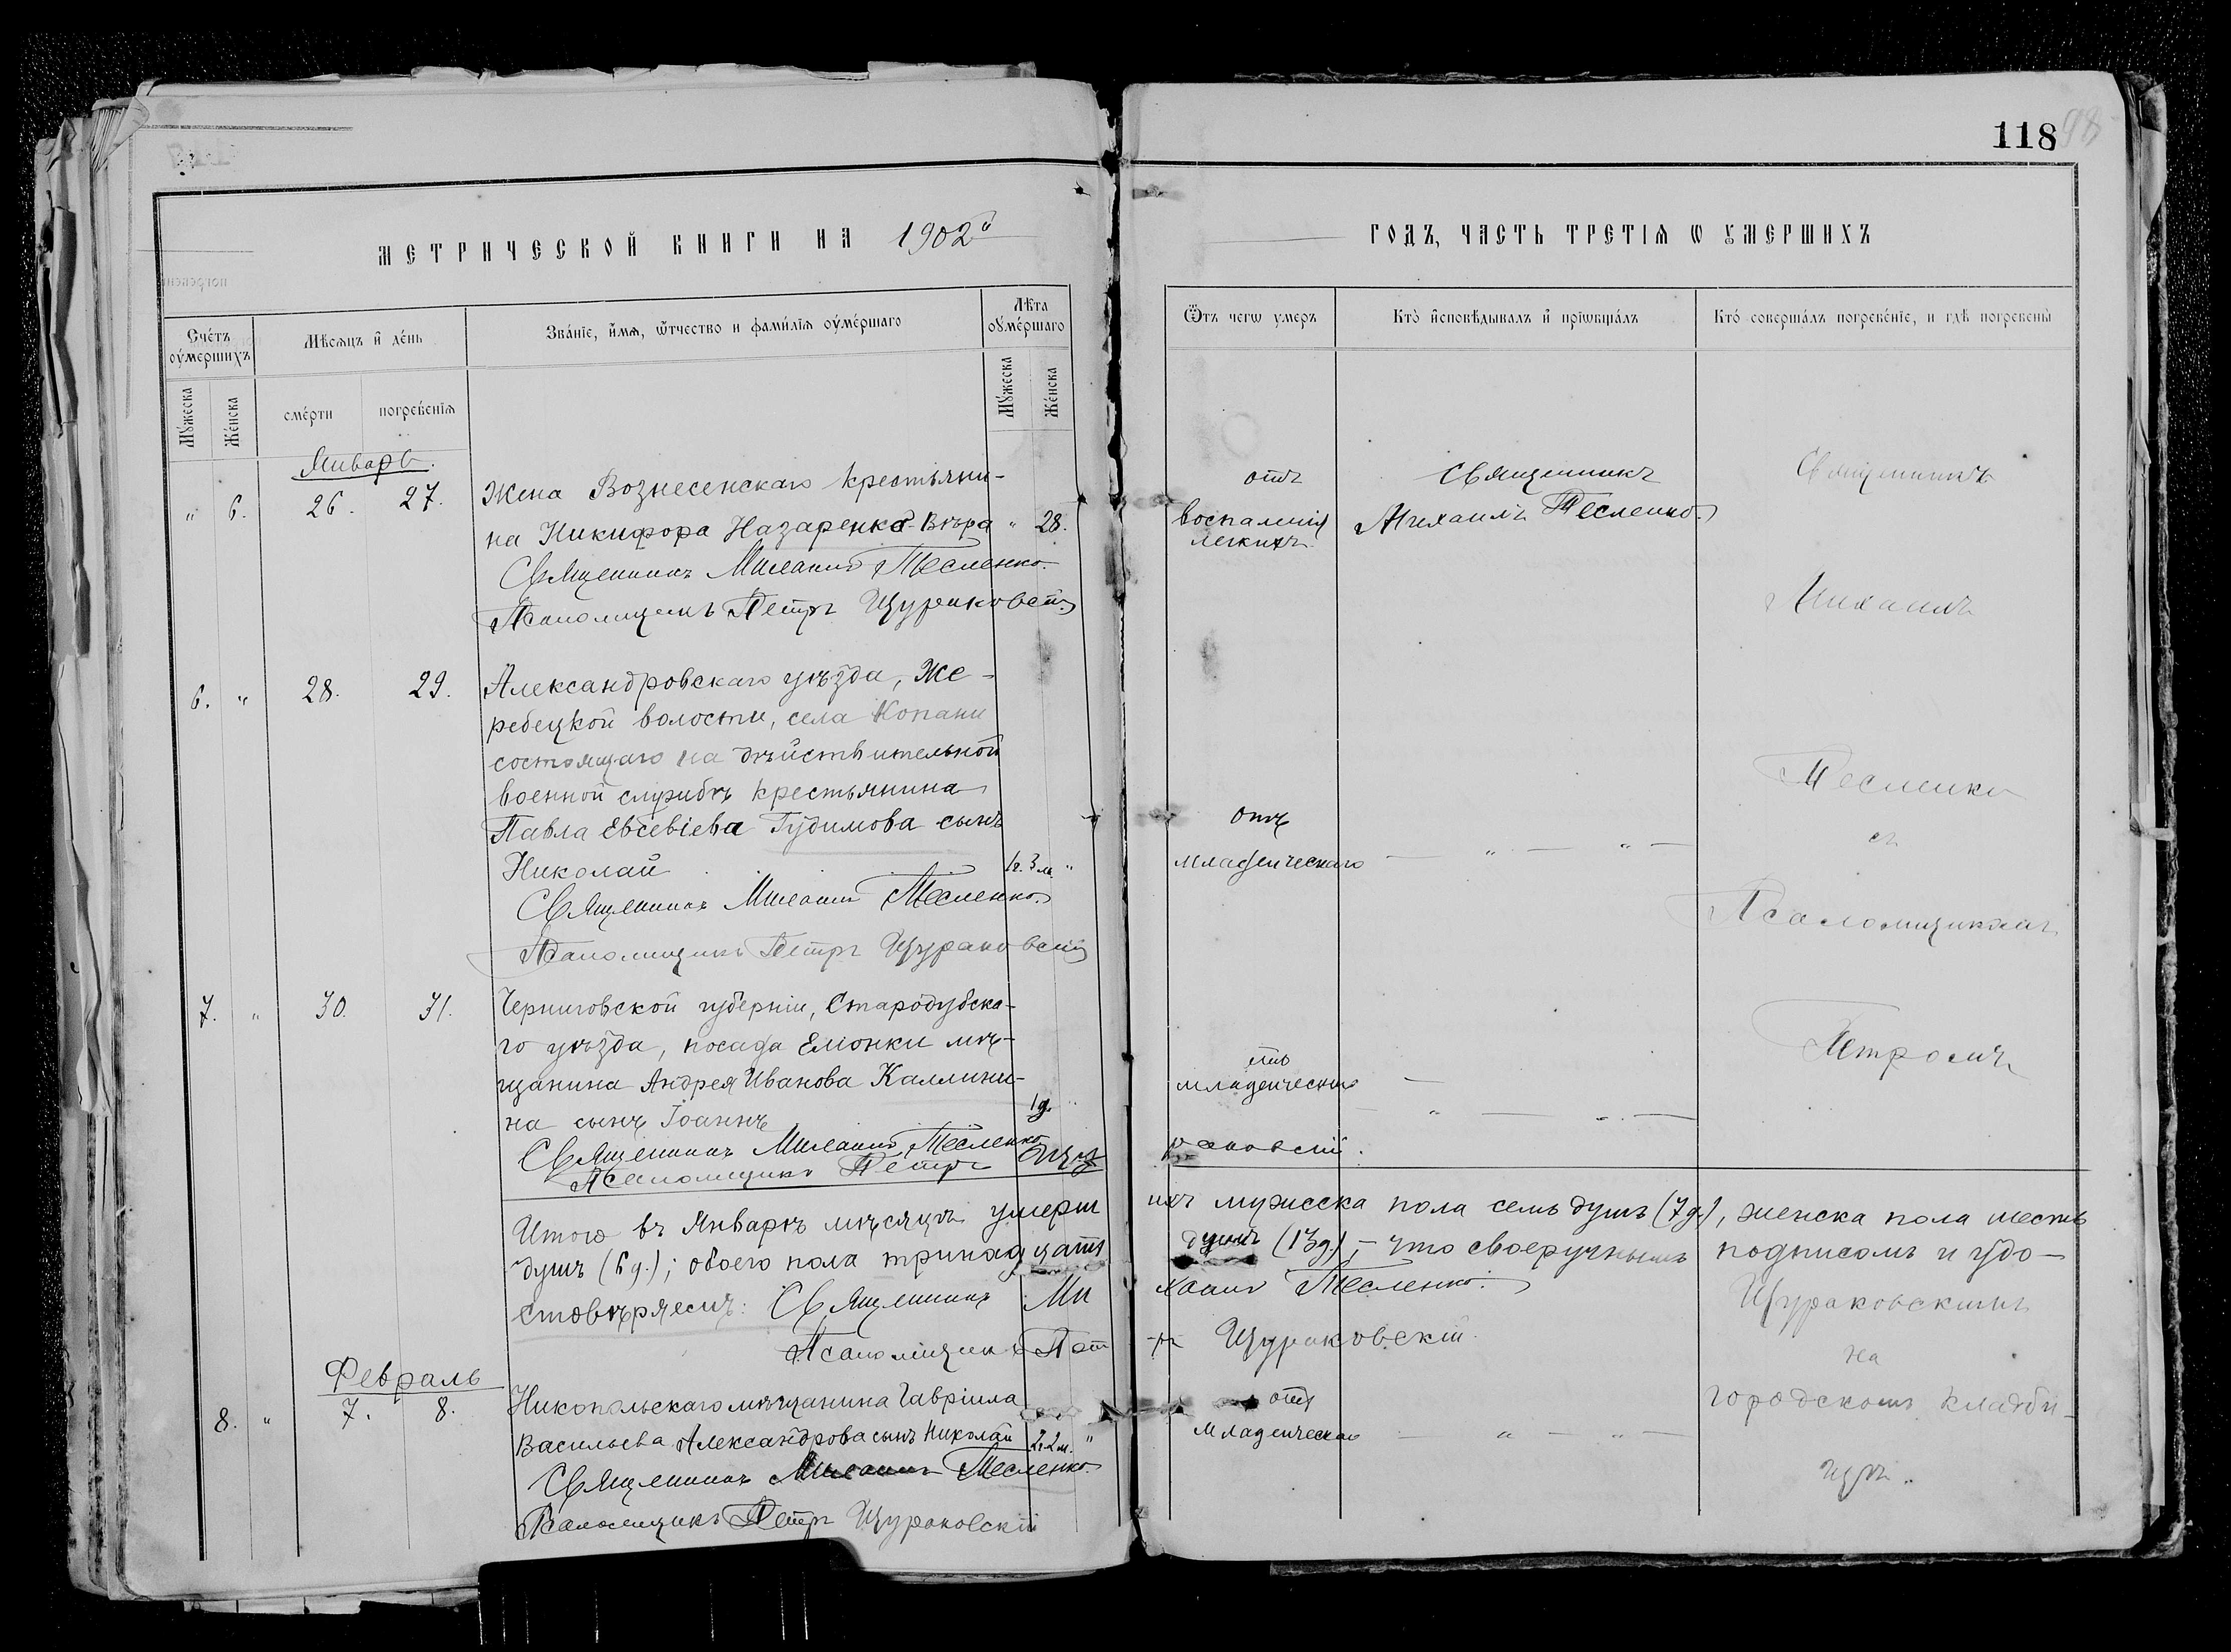 118
МЕТРИЧЕСКОЙ КНИГИ НА 1902й
Счетъ умершихъ
Мѣсяцъ и день
Званіе, имя, отчество и фамилія умершаго
Лѣта умершаго
Мужеска
Женска
смерти
погребенія
Мужеска
Женска
Январь.
" 6. 26. 27.
Жена Вознесенскаго крестьяни-
на Никифора Назаренко Вѣра " 28.
Священникъ Михаилъ Тесленко.
Псаломщикъ Петръ Щураковскій
6. " 28. 29.
Александровскаго уѣзда, Же-
ребецкой волости, села Копани
состоящаго на дѣйствительной
военной службѣ крестьянина
Павла Евсевіева Гудимова сынъ
Николай 1г. 3м. "
Священникъ Михаилъ Тесленко.
Псаломщикъ Петръ Щураковскій
7. " 30. 31.
Черниговской губерніи, Стародубска-
го уѣзда, посада Елионки мѣ-
щанина Андрея Иванова Калини-
на сынъ Іоаннъ 1д. "
Священникъ Михаилъ Тесленко
Псаломщикъ Петръ Щураковскій.
Итого въ Январѣ мѣсяцѣ умершихъ мужеска пола семь душъ (7д.), женска пола шесть
душъ (6д.); обоего пола тринадцать душъ (13д.); что своеручнымъ подписомъ и удо-
стовѣряемъ: Священникъ Михаилъ Тесленко.
Псаломщикъ Петръ Щураковскій.
Февраль
8. " 7. 8.
Никопольскаго мѣщанина Гавріила
Васильева Александрова сынъ Николай 2г. 2м. "
Священникъ Михаилъ Тесленко.
Псаломщикъ Петръ Щураковскій
ГОДЪ, ЧАСТЬ ТРЕТІЯ О УМЕРШИХЪ
Отъ чего умеръ
Кто исповѣдывалъ и пріобщалъ
Кто совершалъ погребеніе, и гдѣ погребены
отъ
воспаленія
легкихъ
Священникъ
Михаилъ Тесленко.
отъ
младенческаго — " — " —
отъ
младенческаго —
— " — " —
отъ
младенческаго — " — " —
Священникъ
Михаилъ
Тесленко
съ
Псаломщикомъ
Петромъ
Щураковскимъ
на
городскомъ кладби-
щѣ.